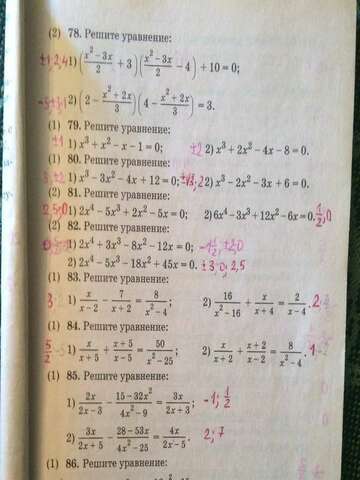 (2) 78. Решите уравнение:
±1,2,4 1) (x²–3x/2 + 3)(x²–3x/2 – 4) + 10 = 0;
2) (2 – x²+2x/3)(4 – x²+2x/3) = 3.
(1) 79. Решите уравнение:
±1 1) x³ + x² – x – 1 = 0; ±2 2) x³ + 2x² – 4x – 8 = 0.
(1) 80. Решите уравнение:
3,±2 1) x³ – 3x² – 4x + 12 = 0; ±√3,2 2) x³ – 2x² – 3x + 6 = 0.
(2) 81. Решите уравнение:
2,5;0 1) 2x⁴ – 5x³ + 2x² – 5x = 0; 2) 6x⁴ – 3x³ + 12x² – 6x = 0. 1/2;0
(2) 82. Решите уравнение:
1) 2x⁴ + 3x³ – 8x² – 12x = 0; –1 1/2; ±2;0
2) 2x⁴ – 5x³ – 18x² + 45x = 0. ±3; 0; 2,5
(1) 83. Решите уравнение:
1) x/x–2 – 7/x+2 = 8/x²–4; 2) 16/x²–16 + x/x+4 = 2/x–4.
(1) 84. Решите уравнение:
1) x/x+5 + x+5/x–5 = 50/x²–25; 2) x/x+2 + x+2/x–2 = 8/x²–4.
(1) 85. Решите уравнение:
1) 2x/2x–3 – 15–32x²/4x²–9 = 3x/2x+3; –1; 1/2
2) 3x/2x+5 – 28–53x/4x²–25 = 4x/2x–5. 2; 7
(1) 86. Решите уравнение: